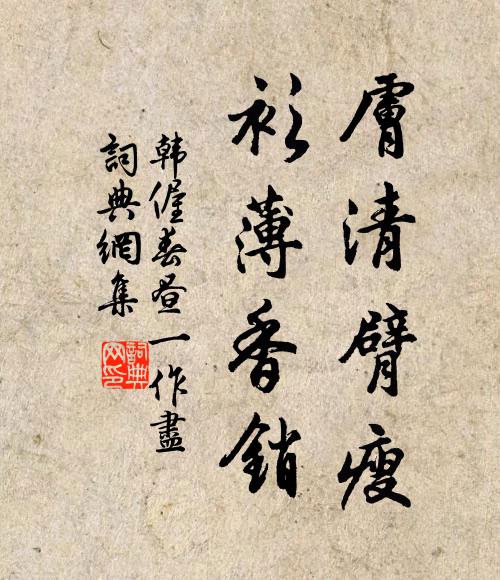 膚清臂瘦
衫薄香銷
韩偓春昼一作盡
詞典網集
詞典网印